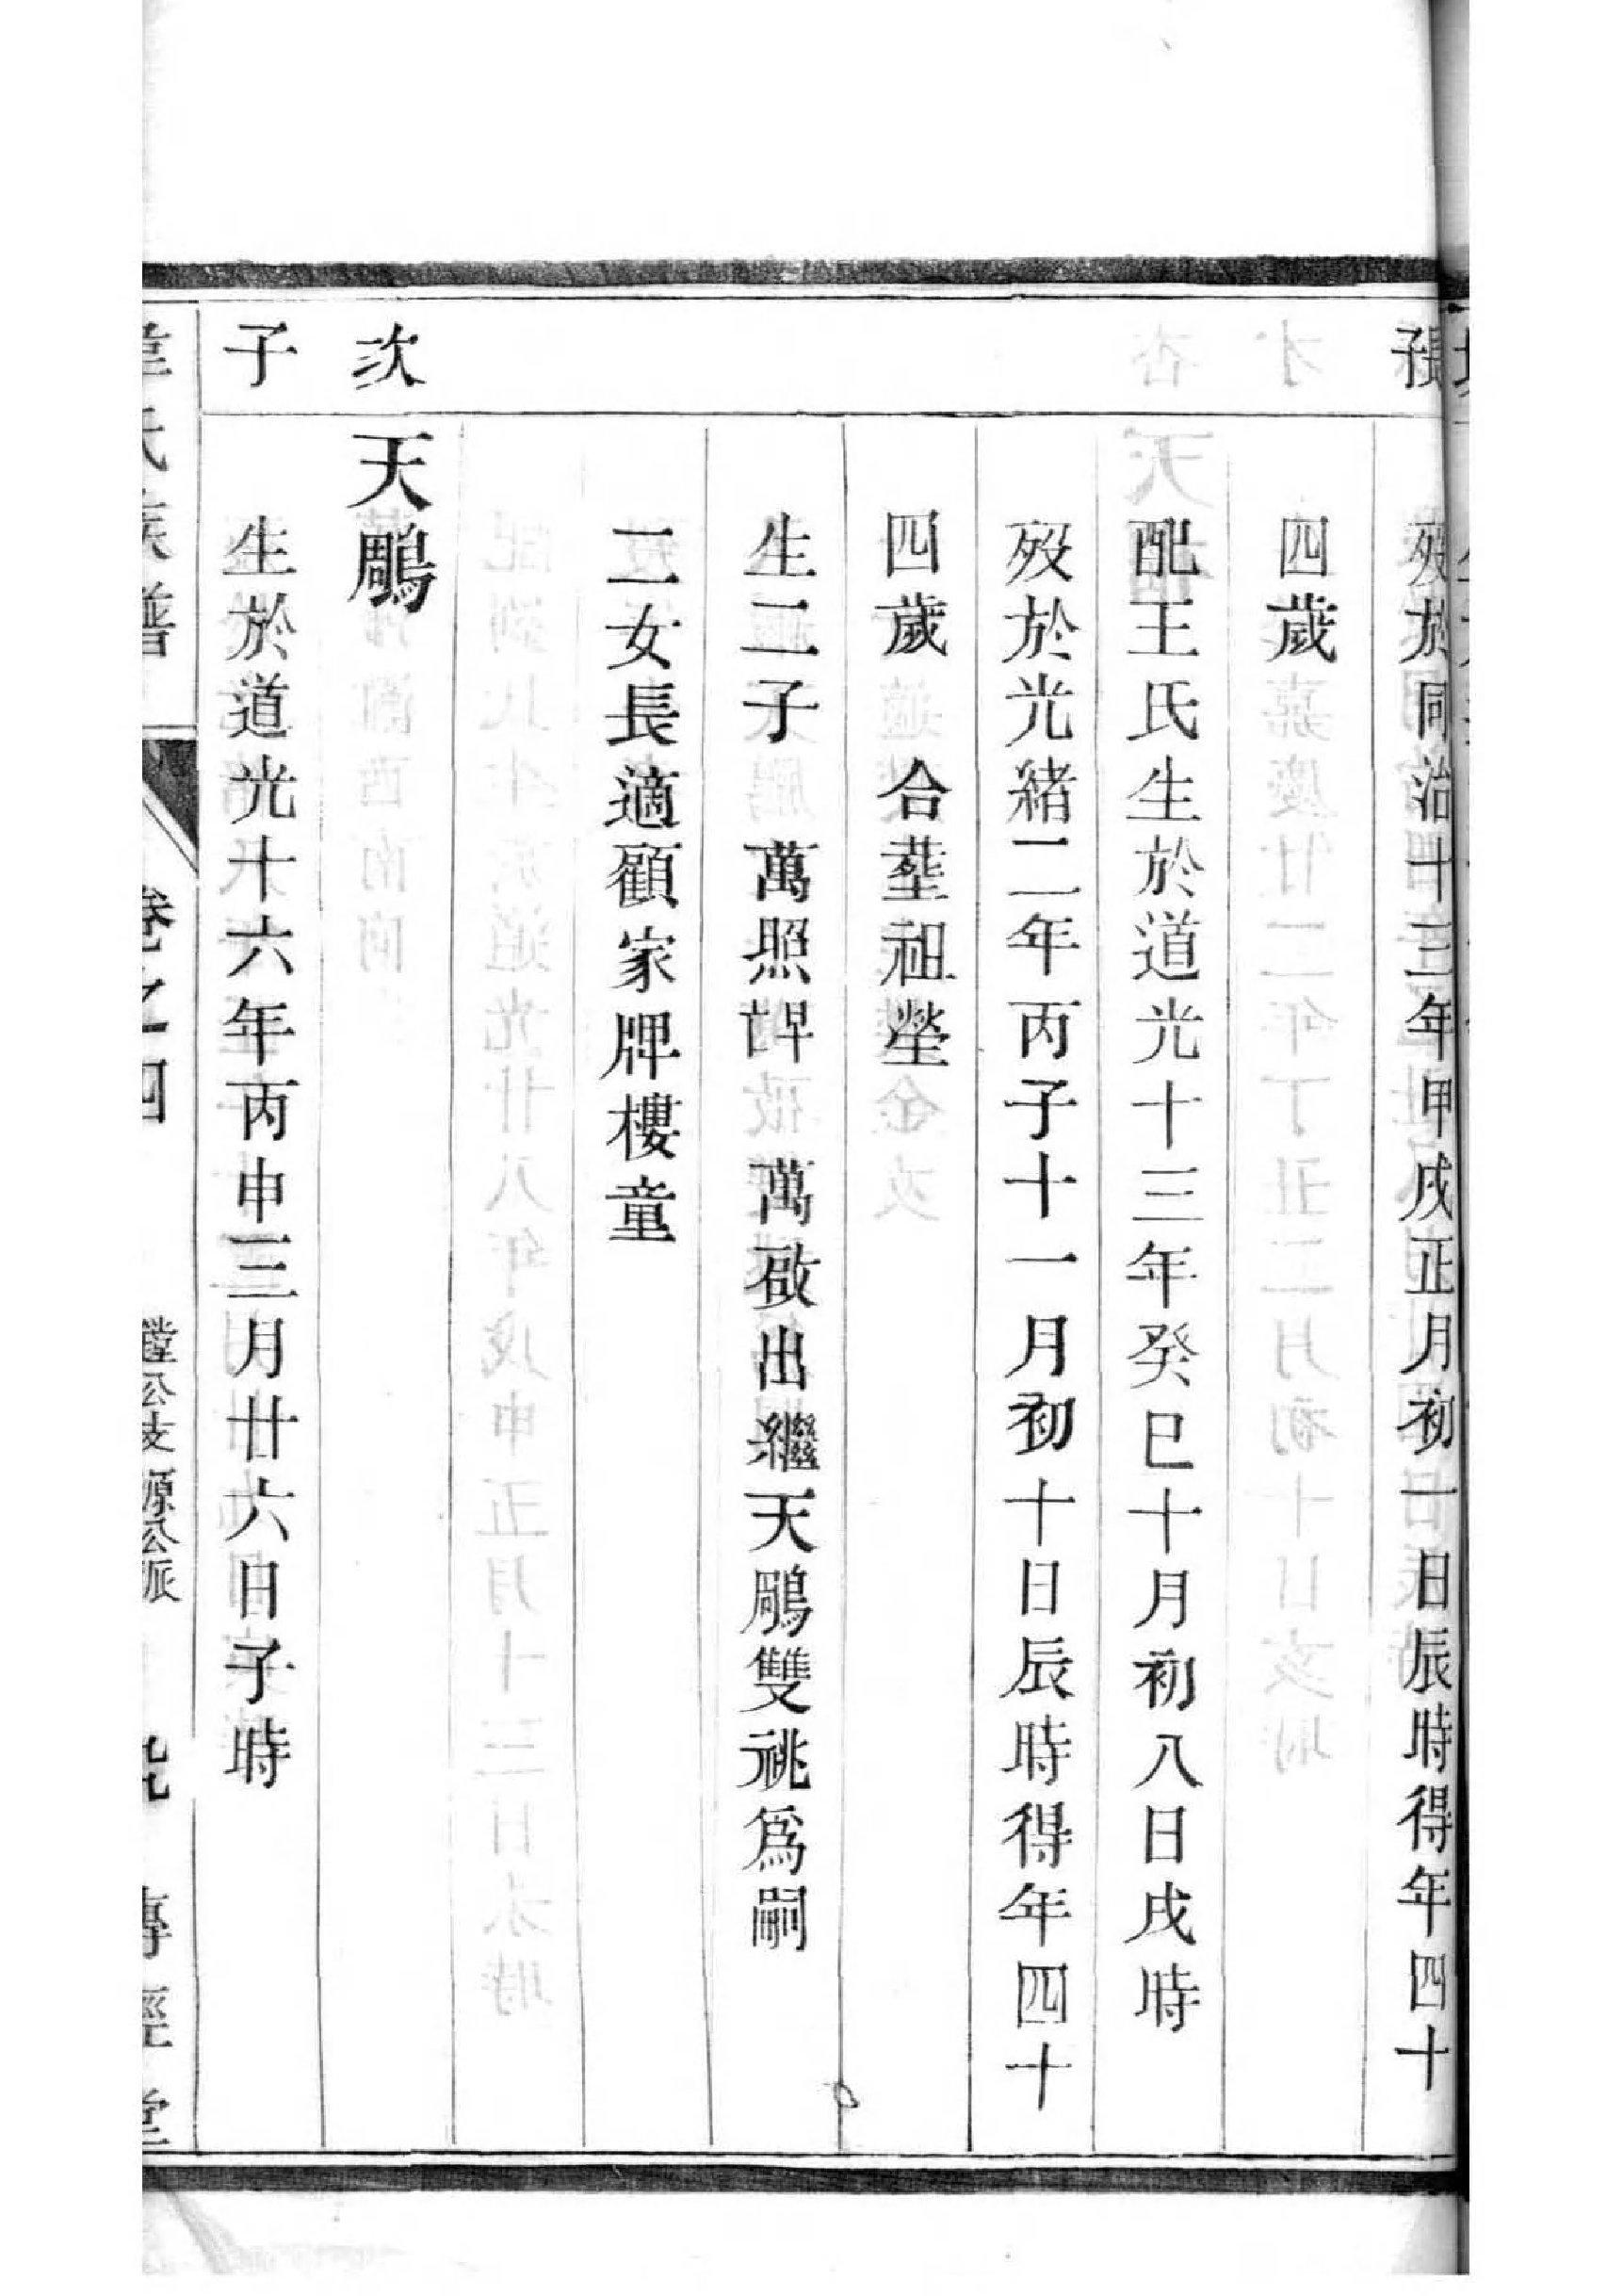 歿於同治十三年甲戌正月初一日辰時得年四十
四歲
配王氏生於道光十三年癸巳十月初八日戌時
歿於光緒二年丙子十一月初十日辰時得年四十
四歲 合塟祖塋
生二子 萬照 萬啟出繼天鵰雙祧為嗣
二女長適顧家牌樓童
次
天鵰
子
生於道光十六年丙申三月廿六日子時
氏族譜 卷之四 公支 源公派 傳經堂